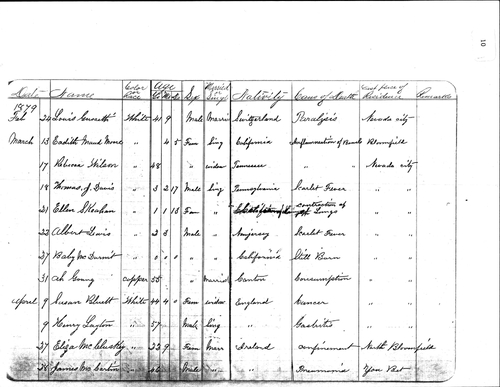 10
Date Name Color or Race Age Y M D Sex Married or Single Nativity Cause of Death Last place of Residence Remarks
1879
Feb 24 Louis White 41 9 Male Marri Switzerland Paralysis Nevada city
March 13 Eadith Maud " 4 5 Fem Sing California Inflammation of Bowels Bloomfield
17 Rebecca Wilson " 48 " widow Tennessee Nevada city
18 Thomas J. Davis " 3 2 17 Male Sing Pennsylvania Scarlet Fever " "
21 Ellen S " 1 1 13 Fem " " contraction of Lungs " "
22 Albert Lewis " 2 3 Male " New jersey Scarlet Fever " "
27 Baby Mc Durmit " 0 0 0 " " California Still Born " "
31 Ah Goung copper 55 " Married Canton Consumption " "
April 9 Susan White 44 4 0 Fem widow England Cancer " "
9 Henry Layton " 57 Male Sing " Gastritis " "
27 Eliza Mc Cluskey " 22 9 Fem Marr Ireland confinement North Bloomfield
28 James Mc " 46 Male " " Pneumonia You Bet